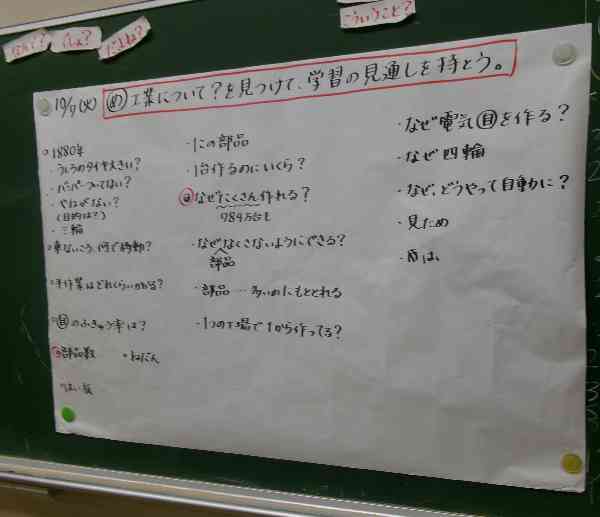 なんで?
でしょ?
だよね?
こういうこと?
10/9(火) め 工業について?を見つけて、学習の見通しを持とう。
1880年
・うしろのタイヤ大きい?
・バンパーついてない?
・やねがない?
(目的は?)
・三輪
手作業はどれくらいかかる?
自のふきゅう率は?
部品数
・ねだん
・この部品
・1台作るのにいくら?
なぜたくさん作れる?
984万台も
・なぜなくさないようにできる?
部品
・部品…多いめにもととれる
・1つの工場で1から作ってる?
・なぜ電気自を作る?
・なぜ四輪
・なぜ、どうやって自動に?
・見ため